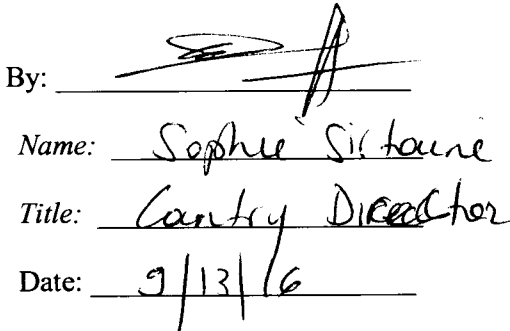 By:
Name: Sophie Sirtaine
Title: Country Director
Date: 9/13/16